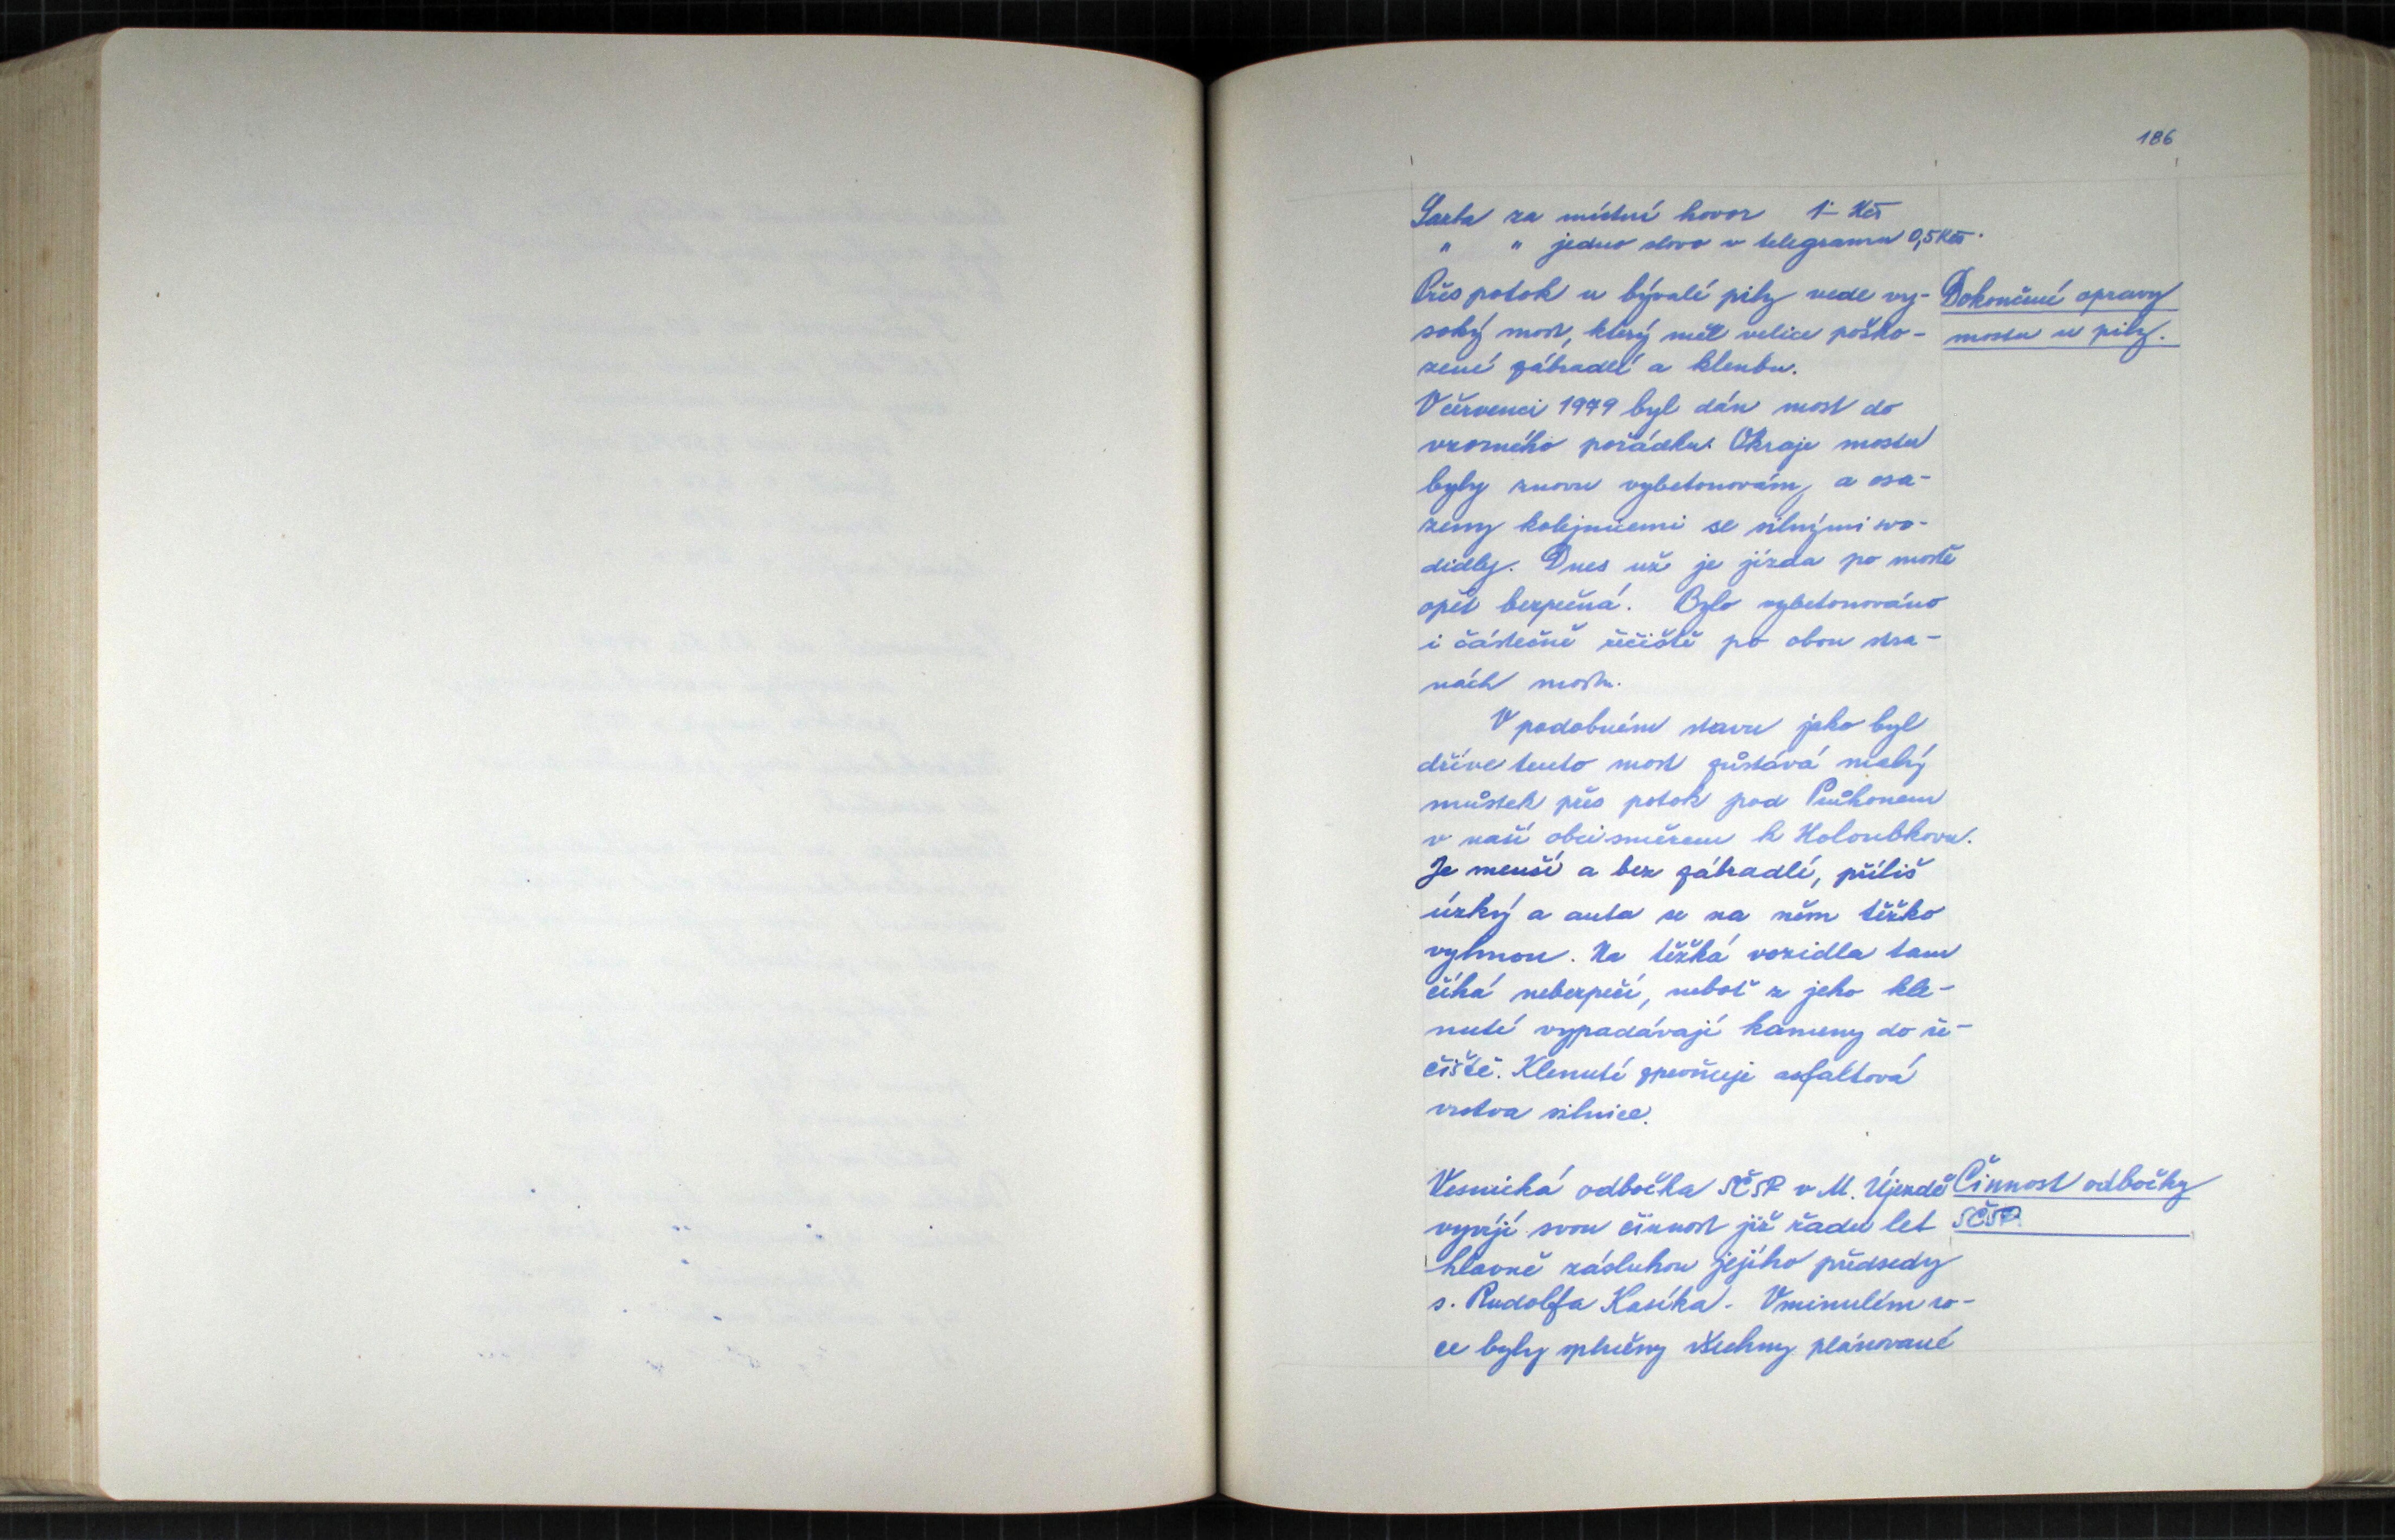 186
Sazba za místní hovor 1- Kčs
" " jedno slovo v telegramu 0,5 Kčs.
Přes potok u bývalé pily vede vy-
soký most, který měl velice poško-
zené zábradlí a klenbu.
Dokončení opravy
mostu u pily.
V červenci 1979 byl dán most do
vzorného pořádku. Okraje mostu
byly znovu vybetonovány a osa-
zeny kolejnicemi se silnými svo-
didly. Dnes už je jízda po mostě
opět bezpečná. Bylo vybetonováno
i částečně řečiště po obou stra-
nách mostu.
V podobném stavu jako byl
dříve tento most zůstává malý
můstek přes potok pod Průhonem
v naší obci směrem k Holoubkovu.
Je menší a bez zábradlí, příliš
úzký a auta se na něm těžko
vyhnou. Na těžká vozidla tam
číhá nebezpečí, neboť z jeho kle-
nutí vypadávají kameny do ře-
čiště. Klenutí zpevňuje asfaltová
vrstva silnice.
Vesnická odbočka SČSP v M. Újezdě
vyvíjí svou činnost již řadu let
hlavně zásluhou jejího předsedy
s. Rudolfa Kasíka. V minulém ro-
ce byly splněny všechny plánované
Činnost odbočky
SČSP